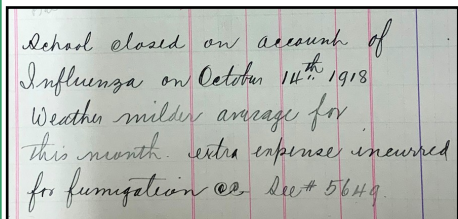 School closed on account of
Influenza on October 14th 1918
Weather milder average for
this month. extra expense incurred
for fumigation @@ See # 5649.